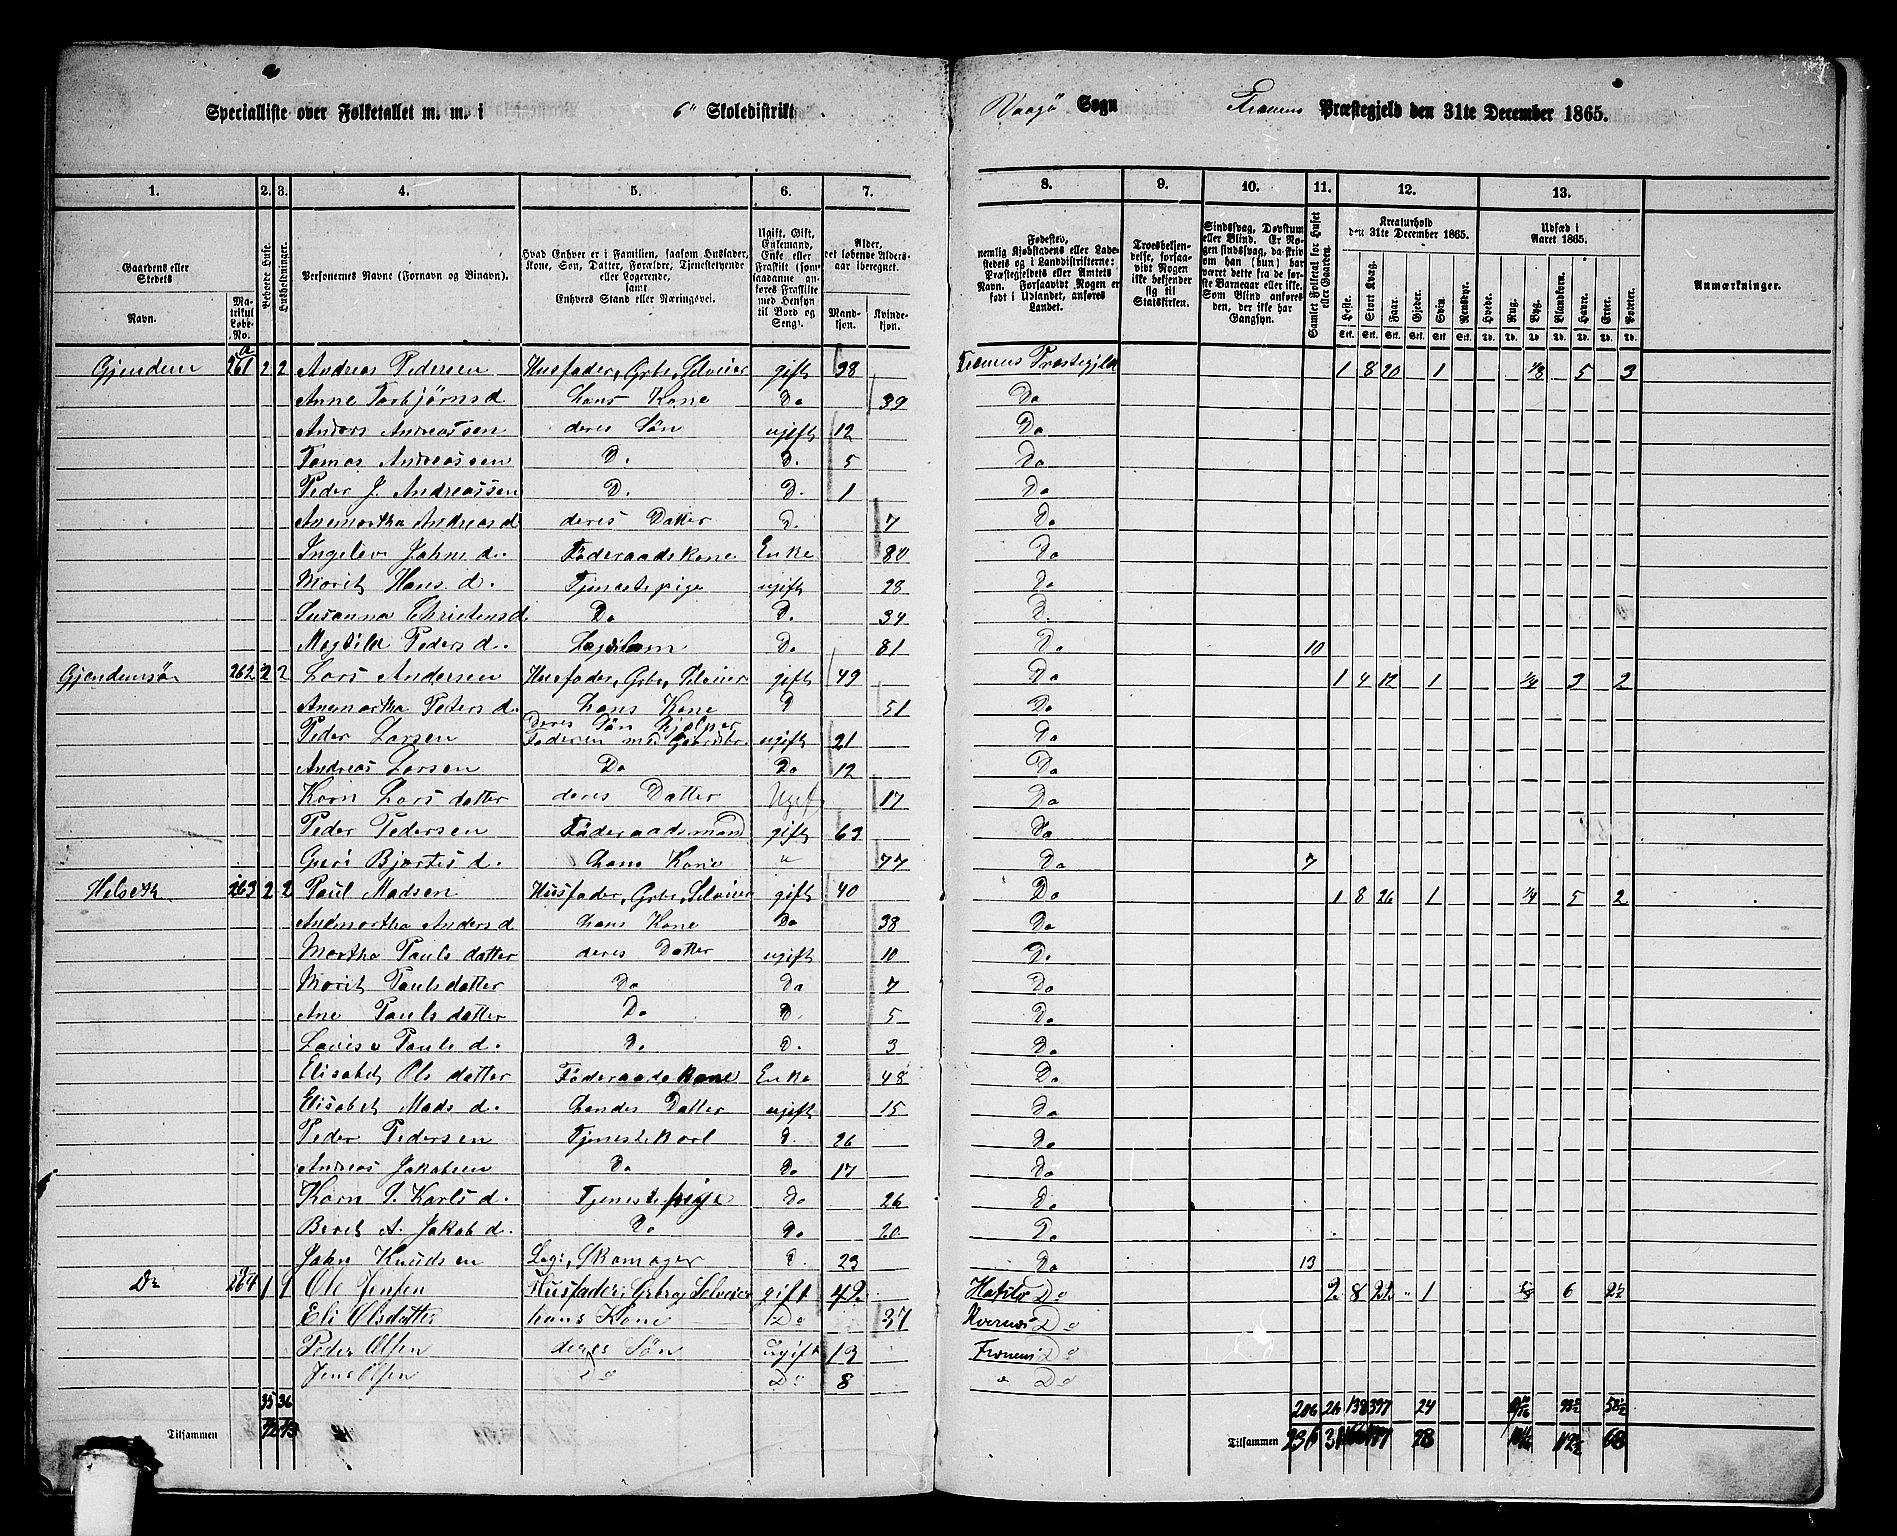 Specialliste over Folketallet m. m. i 6te Skoledistrikt Vaagø Sogn Frænens Præstegjeld den 31te December 1865.
1. 2. 3. 4. 5. 6. 7. 8. 9. 10. 11. 12. 13.
Gaardens eller Stedets Navn. Matrikul Løbe-No. Beboede Huse. Husholdninger. Personernes Navne (Fornavn og Binavn). Hvad Enhver er i Familien, saasom Husfader, Kone, Søn, Datter, Forældre, Tjenestetyende eller Logerende, samt Enhvers Stand eller Næringsvei. Ugift, Gift, Enkemand, Enke eller Fraskilt (som saadanne anføres Fraskilte med Hensyn til Bord og Seng). Alder, det løbende Aldersaar iberegnet. Mandkjøn. Kvindekjøn.
Fødested, nemlig Kjøbstadens eller Ladestedets og i Landdistrikterne: Præstegjeldets eller Amtets Navn. Forsaavidt Nogen er født i Udlandet, anføres Landet. Troesbekjendelse, forsaavidt Nogen ikke bekjender sig til Statskirken. Sindssvag, Døvstum eller Blind. Er Nogen sindssvag, da skrives om han (hun) har været dette fra de første Barneaar eller ikke. Som Blind anføres der, der ikke har Gangsyn. Samlet Folketal for Huset eller Gaarden. Kreaturhold den 31te December 1865. Heste. Stort Kvæg. Faar. Gjeder. Svin. Rensdyr. Udsæd i Aaret 1865. Hvede. Rug. Byg. Blandkorn. Havre. Erter. Poteter. Anmærkninger.
Gjendem 261 a 2 2 Andreas Pedersen Husfader, Grbr, Selveier gift 38 Frænens Præstegjeld 1 8 20 1 1/8 5 3
Anne Torbjørnsd hans Kone Do 39 Do
Anders Andreassen deres Søn ugift 12 Do
Tomas Andreassen D. D. 5 Do
Peder J. Andreassen D. D. 1 Do
Anemartha Andreasd deres Datter D. 7 Do
Ingelev Johns d. Føderaadskone Enke 80 Do
Marit Hans d. Tjenestepige ugift 28 Do
Susanna Christens d. Do D. 34 D.
Magtild Peders d. Lægdslem Do 81 Do 10
Gjendemsø 262 2 2 Lars Andersen Husfader, Grbr, Selveier gift 49 Do 1 4 12 1 1/4 3 2
Anemartha Peders d. hans Kone D 51 Do
Peder Larsen Deres Søn Hjelper Faderen med Gaardsbr. ugift 21 Do
Andreas Larsen Do Do 12 Do
Karn Lars datter deres Datter Ugift 17 Do
Peder Pedersen Føderaadsmand gift 63 Do
Guri Bjertes d. hans Kone " 77 Do 7
Helseth 263 2 2 Paul Madsen Husfader, Grbr, Selveier gift 40 Do 1 8 26 1 1/4 5 2
Anemartha Anders d hans Kone Do 38 Do
Martha Pauls datter deres Datter ugift 10 Do
Marit Paulsdatter Do Do 7 Do
Ane Pauls datter Do D. 5 Do
Lovise Pauls d. Do D. 3 Do
Elisabet Ols datter Føderaadskone Enke 48 Do
Elisabet Mads d. hendes Datter ugift 15 Do
Peder Pedersen Tjenestekarl D. 26 Do
Andreas Jakobsen Do Do 17 Do
Karn P. Karls d. Tjenestepige Do 26 Do
Beret A. Jakob d. Do Do 20 Do
John Knudsen Logi, Skomager D. 23 Do 13
Do 264 1 1 Ole Jensen Husfader, Grbr og Selveier gift 42 Do 2 8 22 " 1 6 2½
Eli Olsdatter hans Kone Do 37 Kvernes Do
Peder Olsen deres Søn ugift 13 Frænens Do
Jens Olsen Do Do 8 " Do
35 36 206 26 138 397 24
Tilsammen 72 73 Tilsammen 28 68